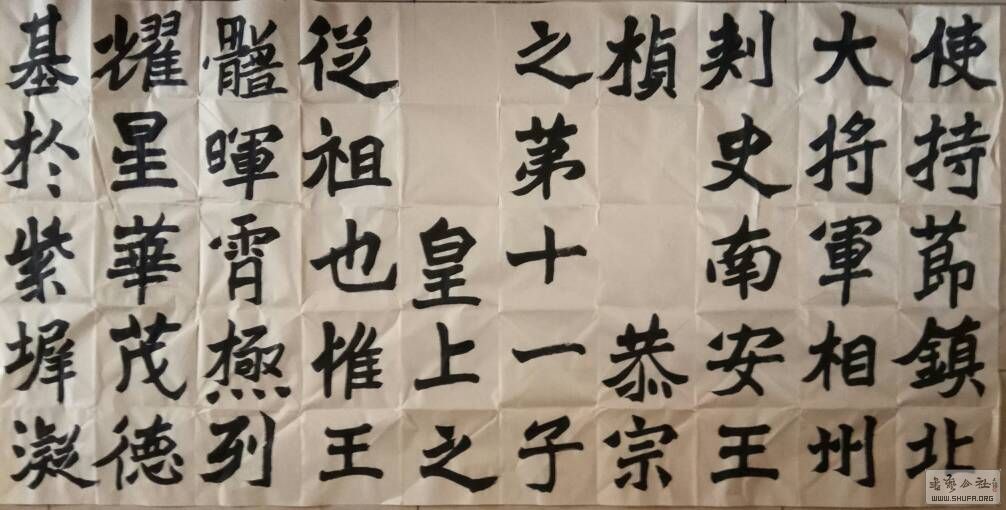 使持莭鎮北
大将軍相州
刾史南安王
楨恭宗
之苐十一子
皇上之
従祖也惟王
體暉霄極列
耀星華茂德
基扵紫墀凝
书艺公社
WWW.SHUFA.ORG